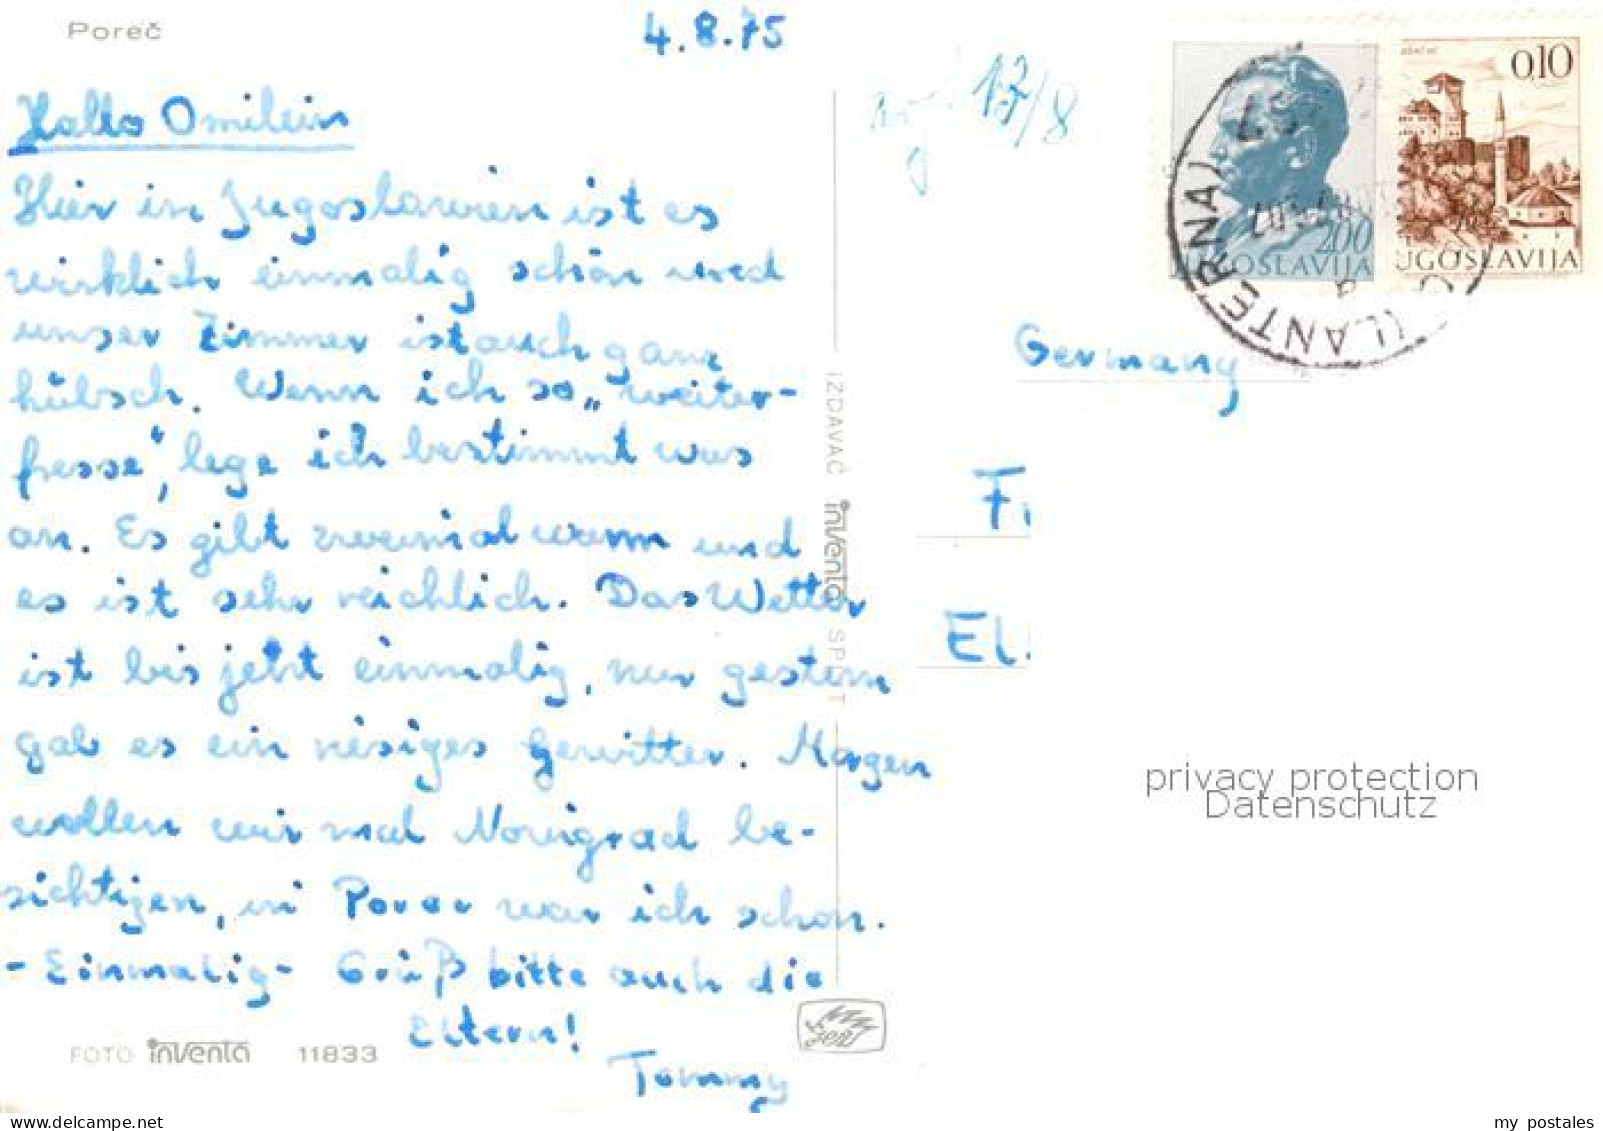 Poreč
4.8.75
Hallo Omilein
Hier in Jugoslawien ist es
wirklich einmalig schön und
unser Zimmer ist auch ganz
hübsch. Wenn ich so „weiter-
fresse“, lege ich bestimmt was
an. Es gibt zweimal warm und
es ist sehr reichlich. Das Wetter
ist bis jetzt einmalig, nur gestern
gab es ein riesiges Gewitter. Morgen
wollen wir mal Novigrad be-
sichtigen, in Porec war ich schon.
- Einmalig - Grüß bitte auch die
Eltern!
Tommy
FOTO inventa 11833
IZDAVAČ inventa SPLIT
17/8
200
JUGOSLAVIJA
0,10
JUGOSLAVIJA
(LANTERNA)
Germany
F
El
privacy protection
Datenschutz
my postales